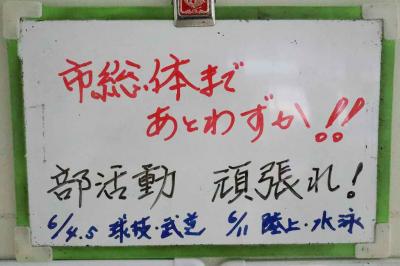 市総体まで
あとわずか!!
部活動 頑張れ!
6/4.5 球技・武道 6/11 陸上・水泳